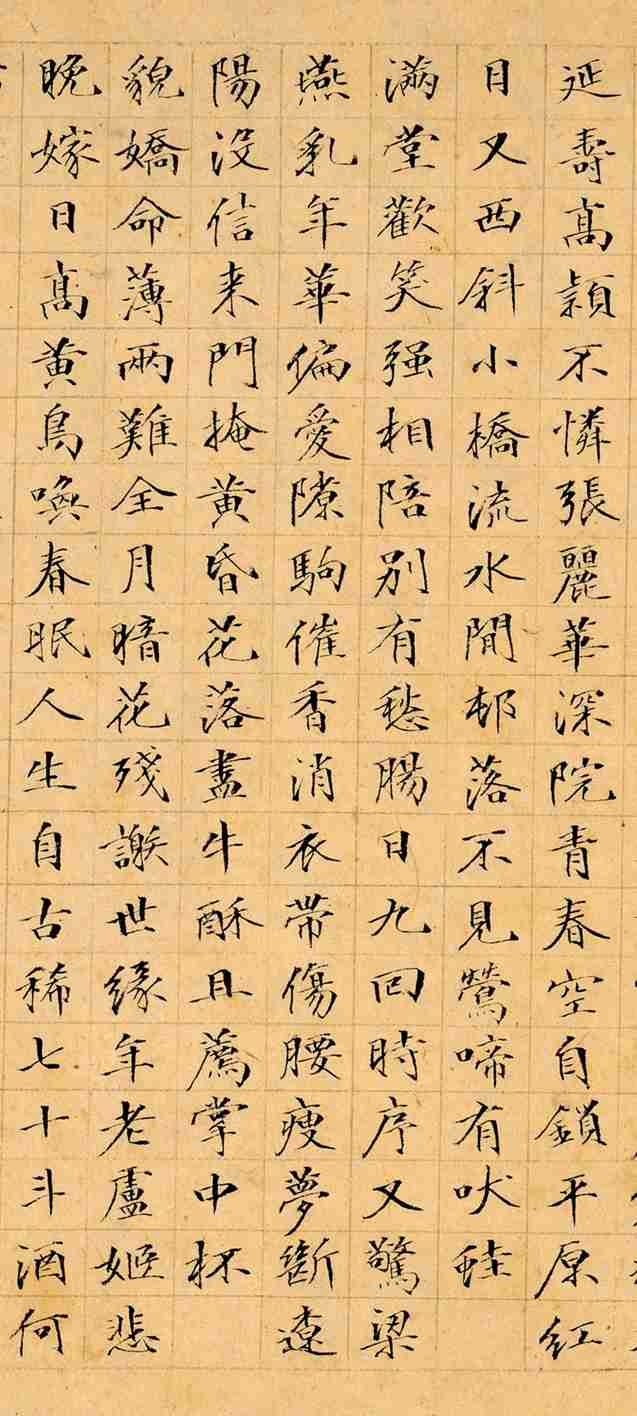 延壽高潁不憐張麗華深院青春空自鎖平原紅
日又西斜小橋流水閒邨落不見鶯啼有吠蛙
滿堂歡笑强相陪別有愁腸日九回時序又驚梁
燕乳年華偏愛隙駒催香消衣帶傷腰瘦夢斷遼
陽没信来門掩黄昏花落盡牛酥且薦掌中杯
貌嬌命薄兩難全月暗花殘謝世緣年老盧姬悲
晚嫁日高黄鳥喚春眠人生自古稀七十斗酒何